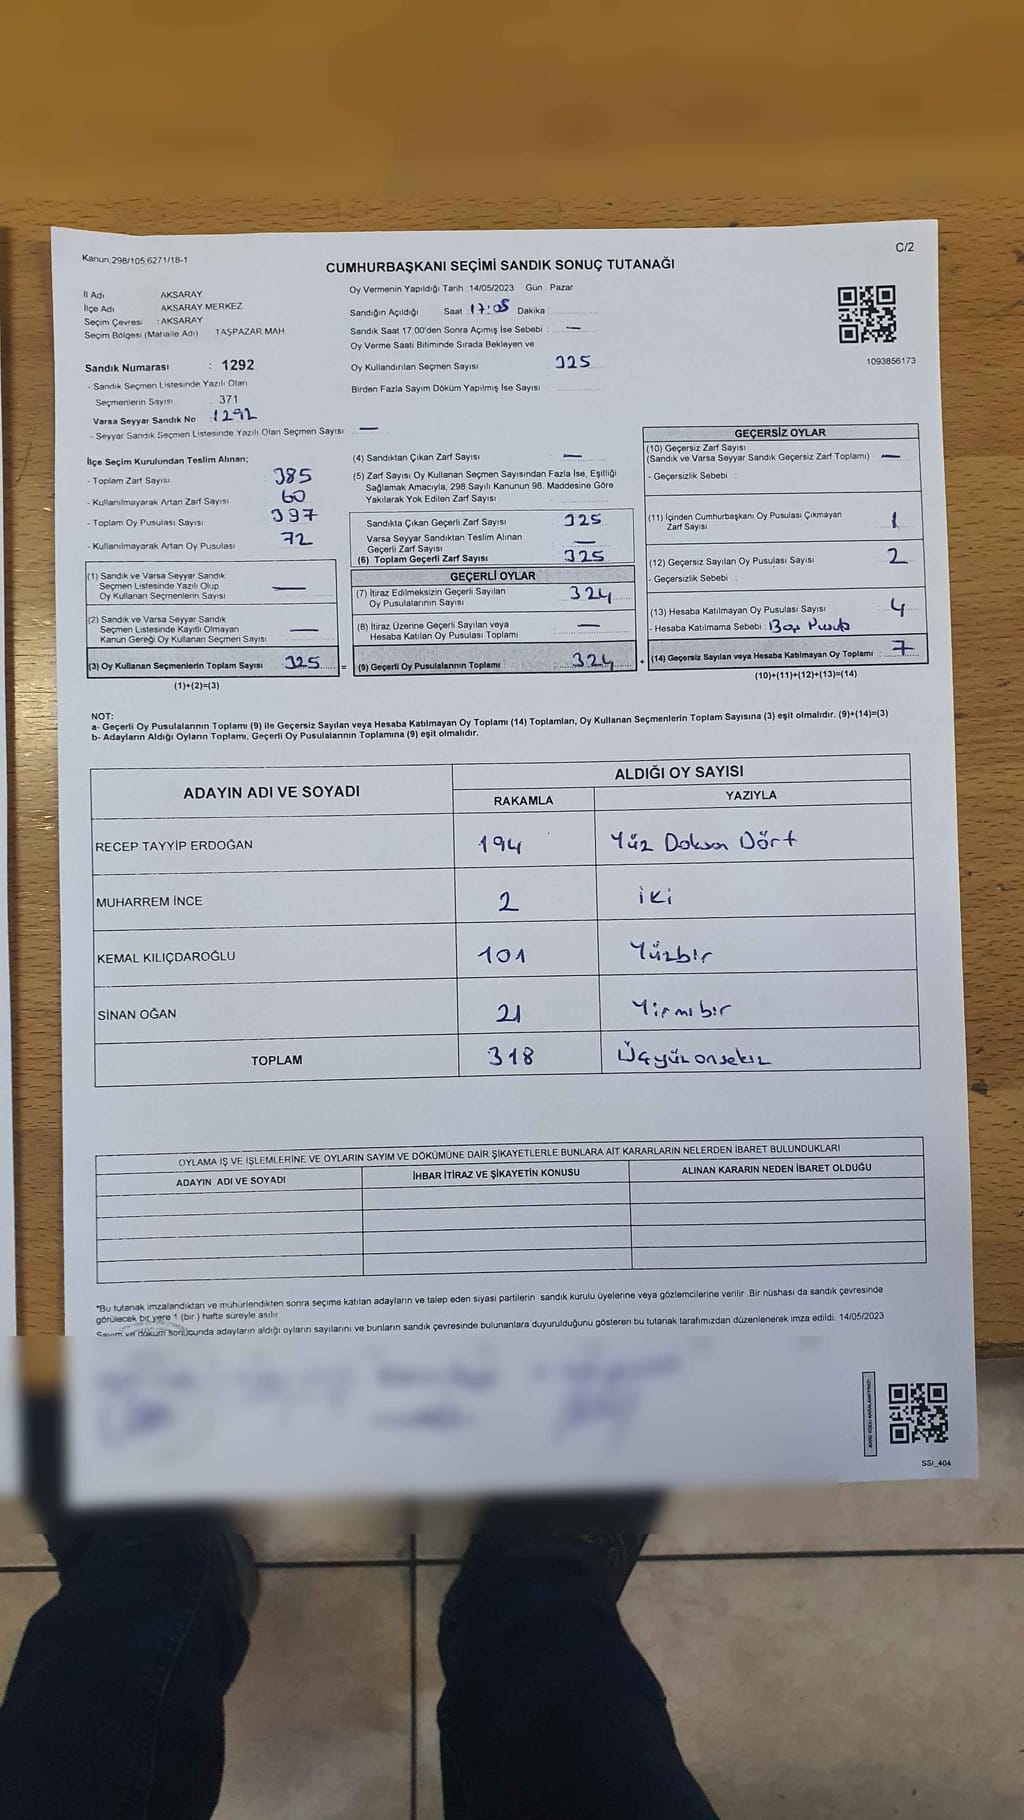 Kanun;298/105,6271/18-1
C/2
CUMHURBAŞKANI SEÇİMİ SANDIK SONUÇ TUTANAĞI
İl Adı AKSARAY
İlçe Adı AKSARAY MERKEZ
Seçim Çevresi : AKSARAY
Seçim Bölgesi (Mahalle Adı) TAŞPAZAR MAH.
Oy Vermenin Yapıldığı Tarih :14/05/2023 Gün : Pazar
Sandığın Açıldığı Saat : 17:05 Dakika :
Sandık Saat 17.00'den Sonra Açımış İse Sebebi : —
Oy Verme Saati Bitiminde Sırada Bekleyen ve
Oy Kullandırılan Seçmen Sayısı : 325
Birden Fazla Sayım Döküm Yapılmış İse Sayısı :
1093856173
Sandık Numarası : 1292
- Sandık Seçmen Listesinde Yazılı Olan
Seçmenlerin Sayısı : 371
Varsa Seyyar Sandık No : 1292
- Seyyar Sandık Seçmen Listesinde Yazılı Olan Seçmen Sayısı : —
İlçe Seçim Kurulundan Teslim Alınan;
- Toplam Zarf Sayısı 385
- Kullanılmayarak Artan Zarf Sayısı 60
- Toplam Oy Pusulası Sayısı 397
- Kullanılmayarak Artan Oy Pusulası 72
(1) Sandık ve Varsa Seyyar Sandık
Seçmen Listesinde Yazılı Olup
Oy Kullanan Seçmenlerin Sayısı —
(2) Sandık ve Varsa Seyyar Sandık
Seçmen Listesinde Kayıtlı Olmayan
Kanun Gereği Oy Kullanan Seçmen Sayısı : —
(3) Oy Kullanan Seçmenlerin Toplam Sayısı 325 =
(1)+(2)=(3)
(4) Sandıktan Çıkan Zarf Sayısı : —
(5) Zarf Sayısı Oy Kullanan Seçmen Sayısından Fazla İse, Eşitliği
Sağlamak Amacıyla, 298 Sayılı Kanunun 98. Maddesine Göre
Yakılarak Yok Edilen Zarf Sayısı :
Sandıkta Çıkan Geçerli Zarf Sayısı : 325
Varsa Seyyar Sandıktan Teslim Alınan
Geçerli Zarf Sayısı : —
(6) Toplam Geçerli Zarf Sayısı : 325
GEÇERLİ OYLAR
(7) İtiraz Edilmeksizin Geçerli Sayılan
Oy Pusulalarının Sayısı : 324
(8) İtiraz Üzerine Geçerli Sayılan veya
Hesaba Katılan Oy Pusulası Toplamı : —
(9) Geçerli Oy Pusulalarının Toplamı : 324 +
GEÇERSİZ OYLAR
(10) Geçersiz Zarf Sayısı
(Sandık ve Varsa Seyyar Sandık Geçersiz Zarf Toplamı) : —
- Geçersizlik Sebebi :
(11) İçinden Cumhurbaşkanı Oy Pusulası Çıkmayan
Zarf Sayısı : 1
(12) Geçersiz Sayılan Oy Pusulası Sayısı : 2
- Geçersizlik Sebebi :
(13) Hesaba Katılmayan Oy Pusulası Sayısı : 4
- Hesaba Katılmama Sebebi :
(14) Geçersiz Sayılan veya Hesaba Katılmayan Oy Toplamı : 7
(10)+(11)+(12)+(13)=(14)
NOT:
a- Geçerli Oy Pusulalarının Toplamı (9) ile Geçersiz Sayılan veya Hesaba Katılmayan Oy Toplamı (14) Toplamları, Oy Kullanan Seçmenlerin Toplam Sayısına (3) eşit olmalıdır. (9)+(14)=(3)
b- Adayların Aldığı Oyların Toplamı, Geçerli Oy Pusulalarının Toplamına (9) eşit olmalıdır.
ADAYIN ADI VE SOYADI
ALDIĞI OY SAYISI
RAKAMLA YAZIYLA
RECEP TAYYİP ERDOĞAN 194 Yüz Doksan Dört
MUHARREM İNCE 2 iki
KEMAL KILIÇDAROĞLU 101 Yüzbir
SİNAN OĞAN 21 Yirmibir
TOPLAM 318 Üçyüz onsekiz
OYLAMA İŞ VE İŞLEMLERİNE VE OYLARIN SAYIM VE DÖKÜMÜNE DAİR ŞİKAYETLERLE BUNLARA AİT KARARLARIN NELERDEN İBARET BULUNDUKLARI
ADAYIN ADI VE SOYADI İHBAR İTİRAZ VE ŞİKAYETİN KONUSU ALINAN KARARIN NEDEN İBARET OLDUĞU
*Bu tutanak imzalandıktan ve mühürlendikten sonra seçime katılan adayların ve talep eden siyasi partilerin sandık kurulu üyelerine veya gözlemcilerine verilir. Bir nüshası da sandık çevresinde
görülecek bir yere 1 (bir ) hafta süreyle asılır
Sayım ve döküm sonucunda adayların aldığı oyların sayılarını ve bunların sandık çevresinde bulunanlara duyurulduğunu gösteren bu tutanak tarafımızdan düzenlenerek imza edildi. 14/05/2023
SSİ_404